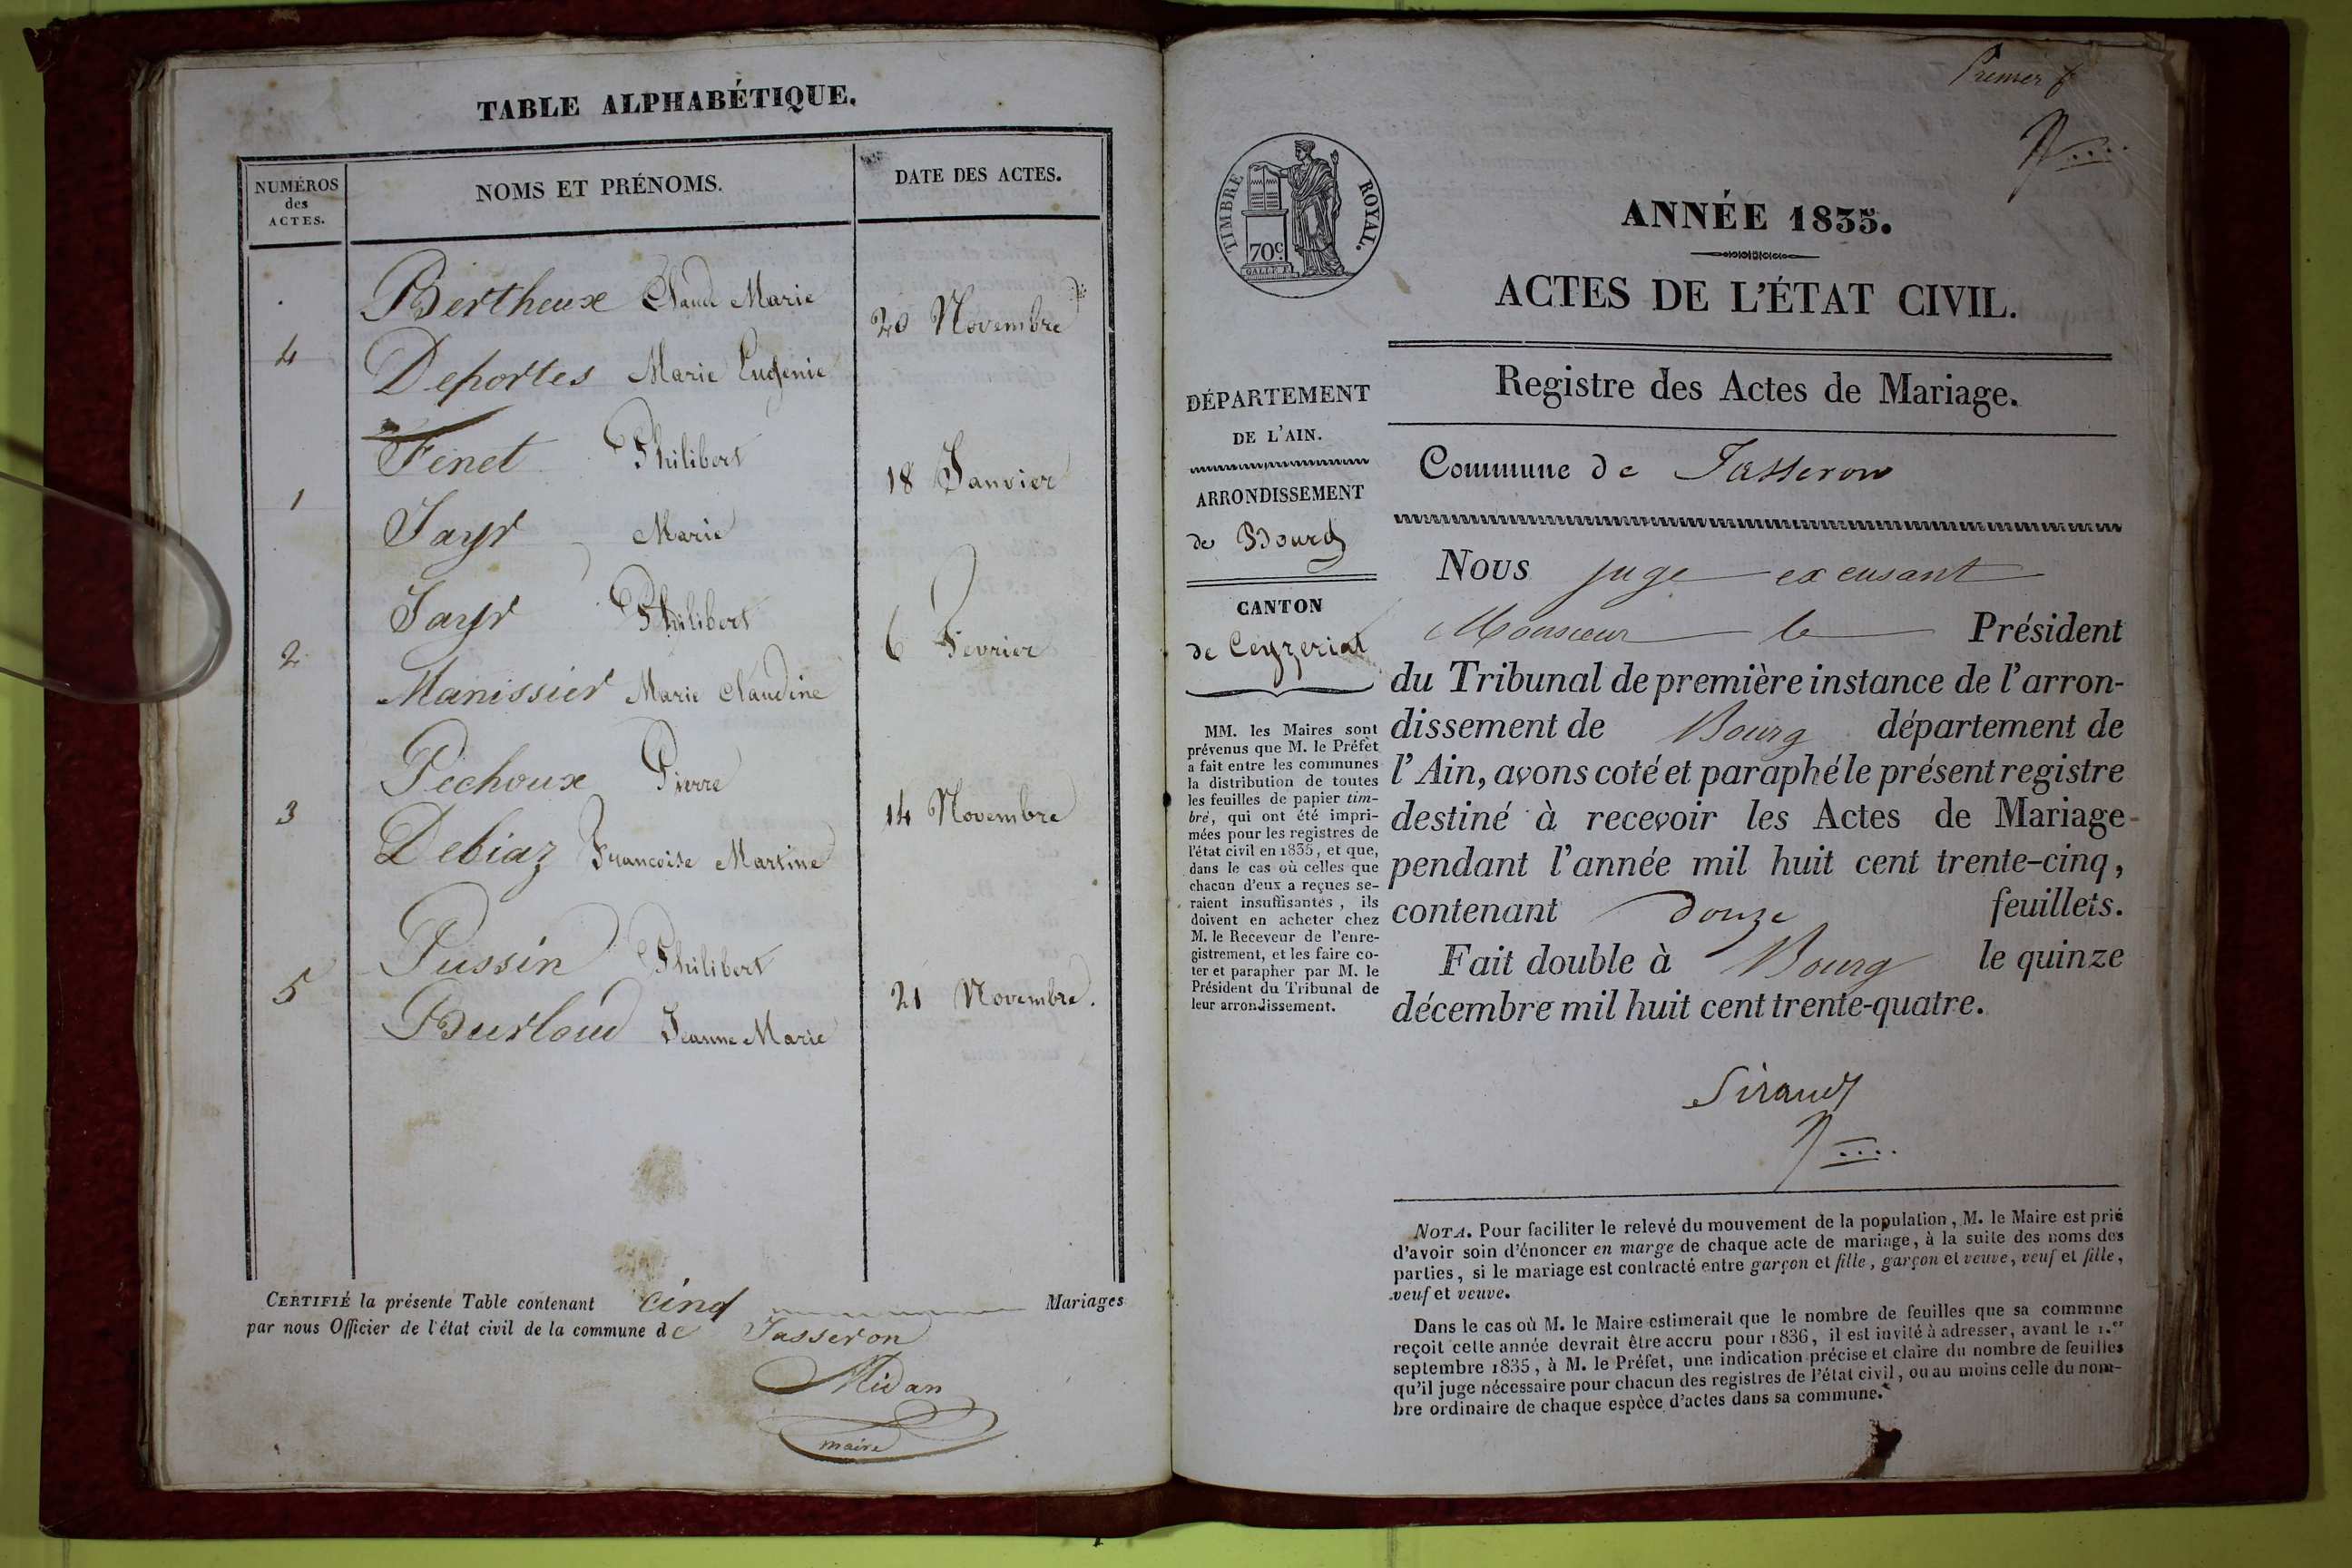 TABLE ALPHABÉTIQUE.
NUMÉROS
des
ACTES.
NOMS ET PRÉNOMS.
DATE DES ACTES.
Bertheux Claude Marie
20 Novembre
4
Deportes Marie Eugénie
Fenet Philibert
18 Janvier
1
Jayr Marie
Jayr Philibert
6 Fevrier
2
Manissier Marie Claudine
Pechoux Pierre
14 Novembre
3
Debiaz Francoise Martine
Pussin Philibert
21 Novembre.
5
Burloud Jeanne Marie
CERTIFIÉ la présente Table contenant cinq Mariages
par nous Officier de l'état civil de la commune de Jasseron
Midan
maire
Premier f
TIMBRE ROYAL.
70c
ANNÉE 1835.
ACTES DE L'ÉTAT CIVIL.
Registre des Actes de Mariage.
DÉPARTEMENT
DE L'AIN.
ARRONDISSEMENT
de Bourg
CANTON
de Ceyzeriat
MM. les Maires sont
prévenus que M. le Préfet
a fait entre les communes
la distribution de toutes
les feuilles de papier tim-
bré, qui ont été impri-
mées pour les registres de
l'état civil en 1835, et que,
dans le cas où celles que
chacun d'eux a reçues se-
raient insuffisantes, ils
doivent en acheter chez
M. le Receveur de l'enre-
gistrement, et les faire co-
ter et parapher par M. le
Président du Tribunal de
leur arrondissement.
Commune de Jasseron
Nous juge excusant
Monsieur le Président
du Tribunal de première instance de l'arron-
dissement de Bourg département de
l'Ain, avons coté et paraphé le présent registre
destiné à recevoir les Actes de Mariage
pendant l'année mil huit cent trente-cinq,
contenant douze feuillets.
Fait double à Bourg le quinze
décembre mil huit cent trente-quatre.
Sirand
NOTA. Pour faciliter le relevé du mouvement de la population, M. le Maire est prié
d'avoir soin d'énoncer en marge de chaque acte de mariage, à la suite des noms des
parties, si le mariage est contracté entre garçon et fille, garçon et veuve, veuf et fille,
veuf et veuve.
Dans le cas où M. le Maire estimerait que le nombre de feuilles que sa commune
reçoit cette année devrait être accru pour 1836, il est invité à adresser, avant le 1.er
septembre 1835, à M. le Préfet, une indication précise et claire du nombre de feuilles
qu'il juge nécessaire pour chacun des registres de l'état civil, ou au moins celle du nom-
bre ordinaire de chaque espèce d'actes dans sa commune.